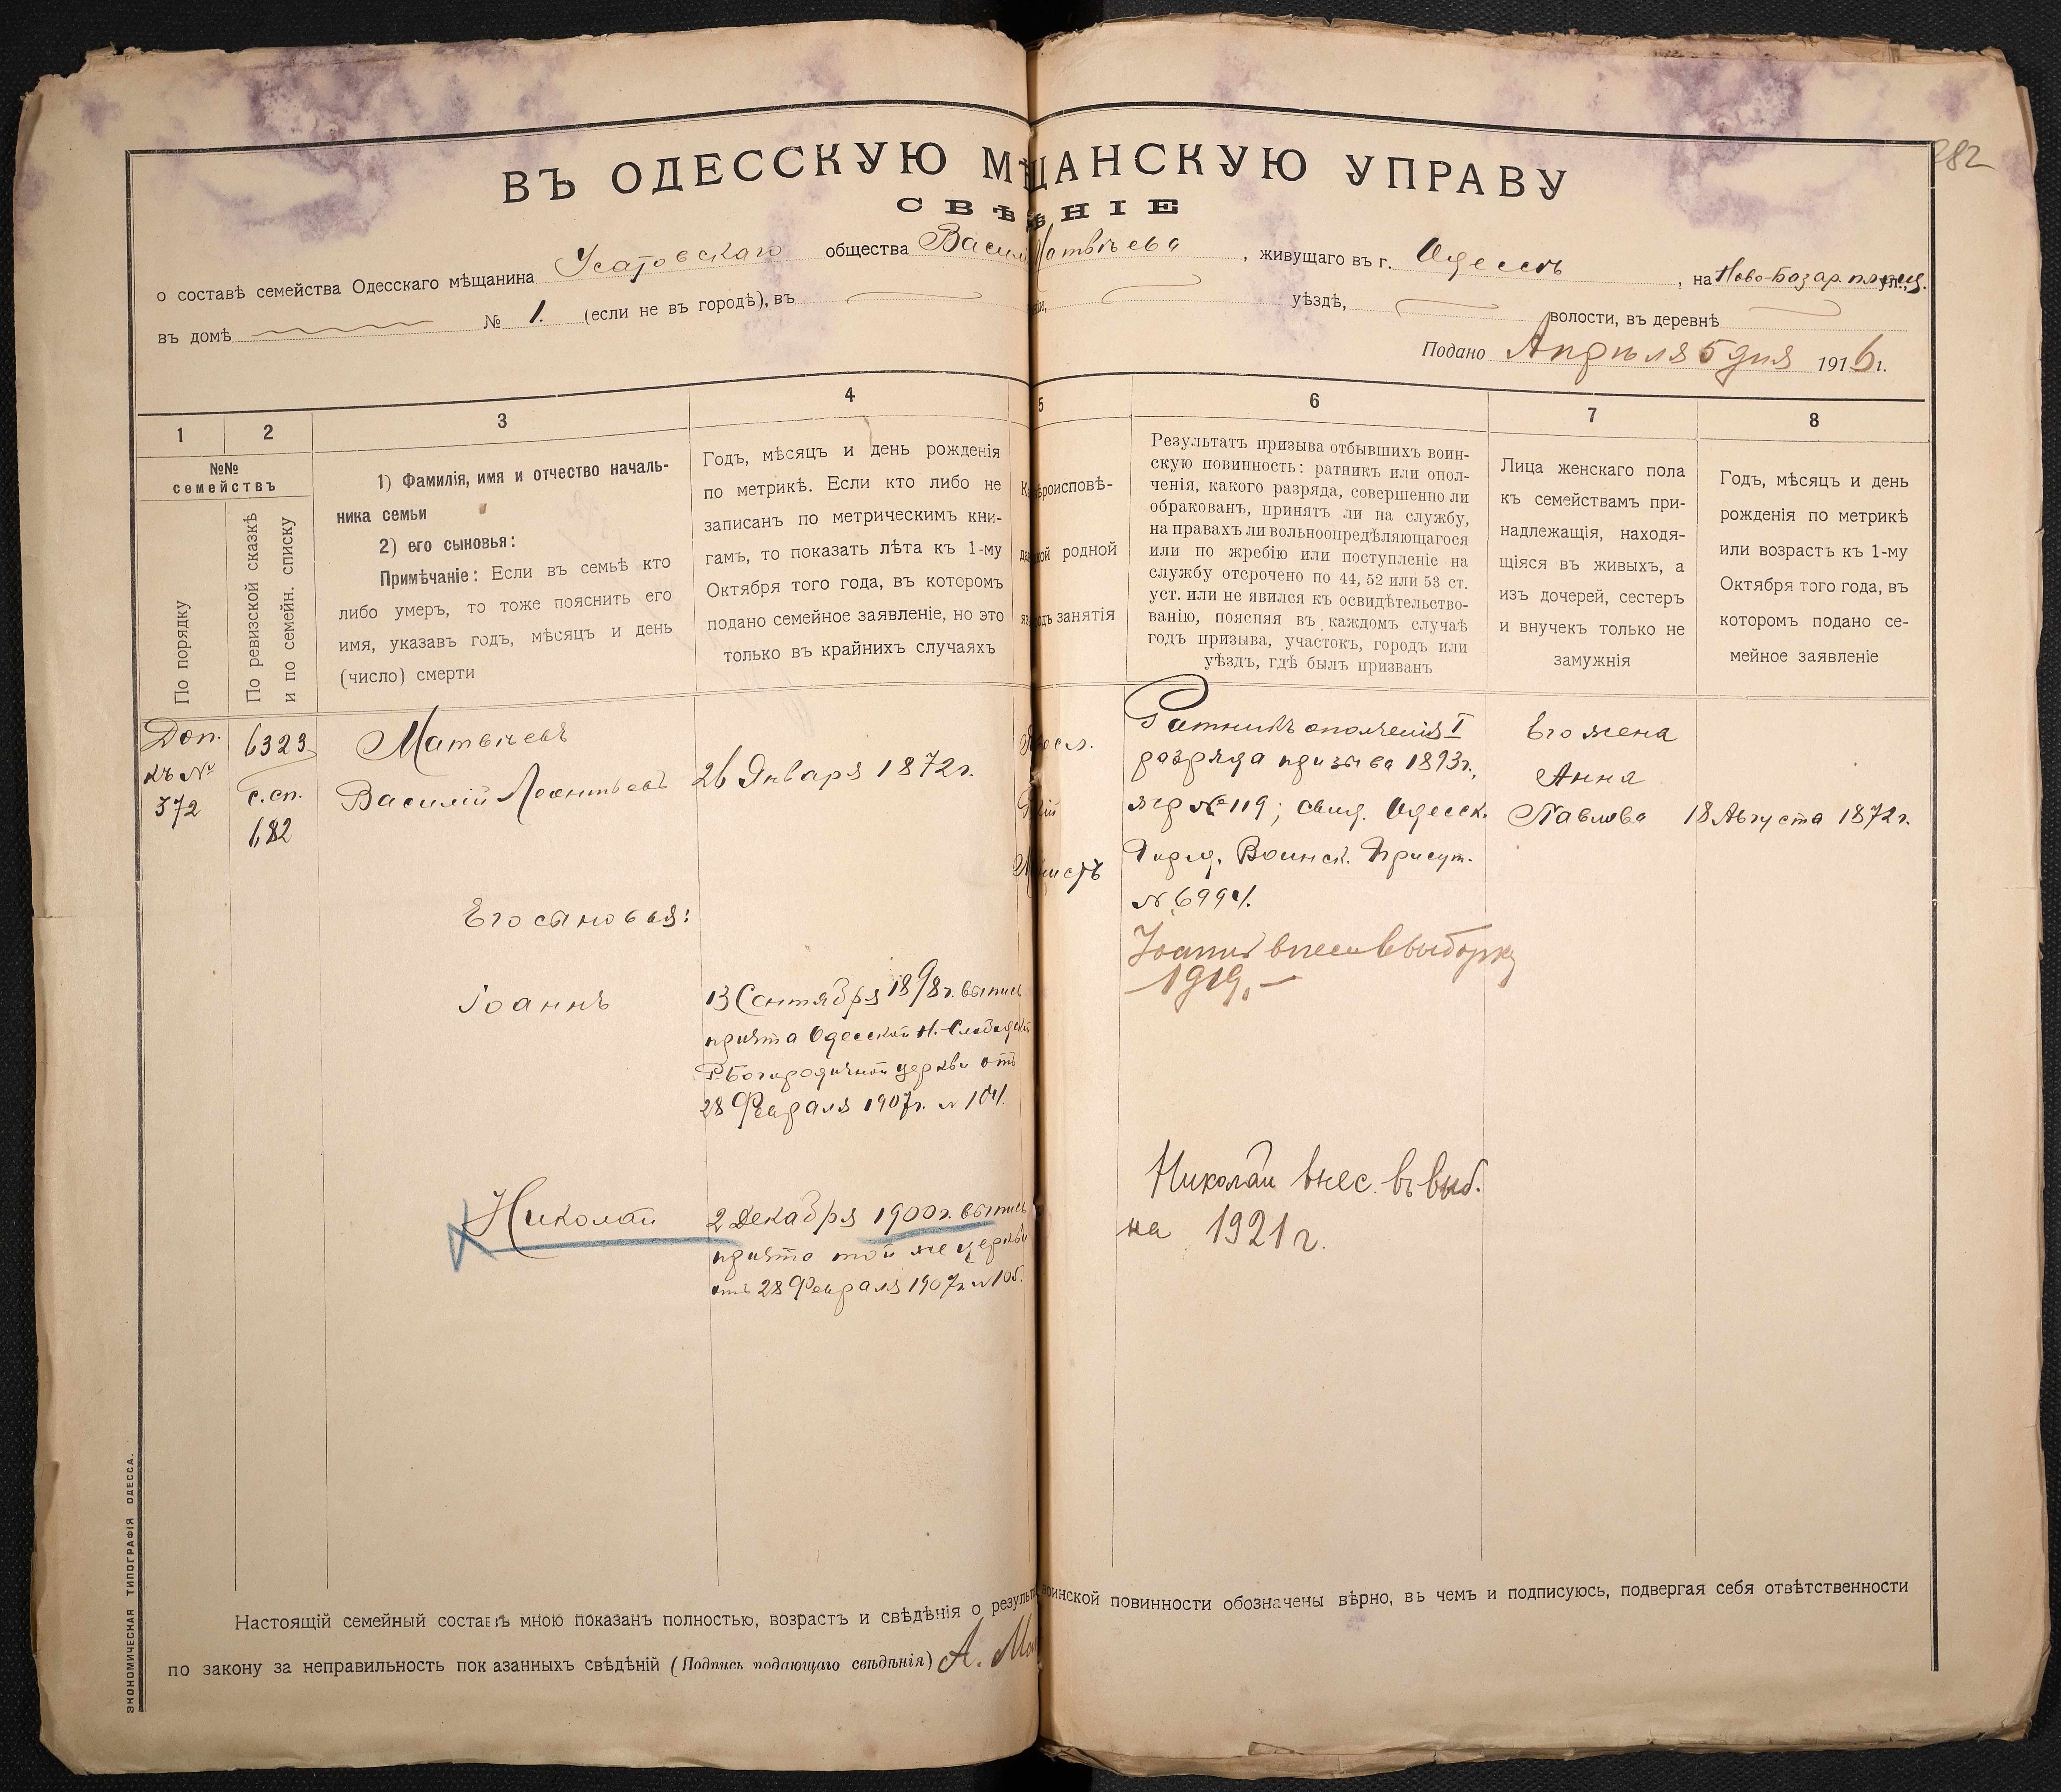 882
ВЪ ОДЕССКУЮ МѢЩАНСКУЮ УПРАВУ
СВѢ НІЕ
о составѣ семейства Одесскаго мѣщанина Усатовскаго общества Васил Матвѣева, живущаго въ г. Одессѣ, на Ново-Базар. площ. ул.,
въ домѣ № 1. (если не въ городѣ), въ уѣздѣ, волости, въ деревнѣ
Подано Апрѣля 5 дня 1916 г.
1 2 3 4 5 6 7 8
№№
семействъ
По порядку
По ревизской сказкѣ
и по семейн. списку
1) Фамилія, имя и отчество началь-
ника семьи
2) его сыновья:
Примѣчаніе: Если въ семьѣ кто
либо умеръ, то тоже пояснить его
имя, указавъ годъ, мѣсяцъ и день
(число) смерти
Годъ, мѣсяцъ и день рожденія
по метрикѣ. Если кто либо не
записанъ по метрическимъ кни-
гамъ, то показать лѣта къ 1-му
Октября того года, въ которомъ
подано семейное заявленіе, но это
только въ крайнихъ случаяхъ
ѣроисповѣ-
родной
занятія
Результатъ призыва отбывшихъ воин-
скую повинность: ратникъ или опол-
ченія, какого разряда, совершенно ли
обракованъ, принятъ ли на службу,
на правахъ ли вольноопредѣляющагося
или по жребію или поступленіе на
службу отсрочено по 44, 52 или 53 ст.
уст. или не явился къ освидѣтельство-
ванію, поясняя въ каждомъ случаѣ
годъ призыва, участокъ, городъ или
уѣздъ, гдѣ былъ призванъ
Лица женскаго пола
къ семействамъ при-
надлежащія, находя-
щіяся въ живыхъ, а
изъ дочерей, сестеръ
и внучекъ только не
замужнія
Годъ, мѣсяцъ и день
рожденія по метрикѣ
или возрастъ къ 1-му
Октября того года, въ
которомъ подано се-
мейное заявленіе
Доп.
къ №
372
6323
с.сп.
682
Матвѣевъ
Василій Леонтьевъ
26 Января 1872 г.
Ратникъ ополченія I
разряда призыва 1893 г.,
жер № 119; свид. Одесск.
Город. Воинск. Присут.
№ 6994.
Его жена
Анна
Павлова
18 Августа 1872 г.
Его сыновья:
Іоаннъ
13 Сентября 1898 г. выпись
причта Одесской Н.-Слободской
Р-Богородичной церкви отъ
28 Февраля 1907 г. № 104.
Іоаннъ внесен въ выборку
1919, —
Николай
2 Декабря 1900 г. выпись
причта той же церкви
отъ 28 Февраля 1907 г. № 105.
Николай внес. въ выб.
на 1921 г.
Настоящій семейный составъ мною показанъ полностью, возрастъ и свѣдѣнія о результ воинской повинности обозначены вѣрно, въ чемъ и подписуюсь, подвергая себя отвѣтственности
по закону за неправильность показанныхъ свѣдѣній (Подпись подающаго свѣдѣнія) А. Ма
ЭКОНОМИЧЕСКАЯ ТИПОГРАФІЯ ОДЕССА.